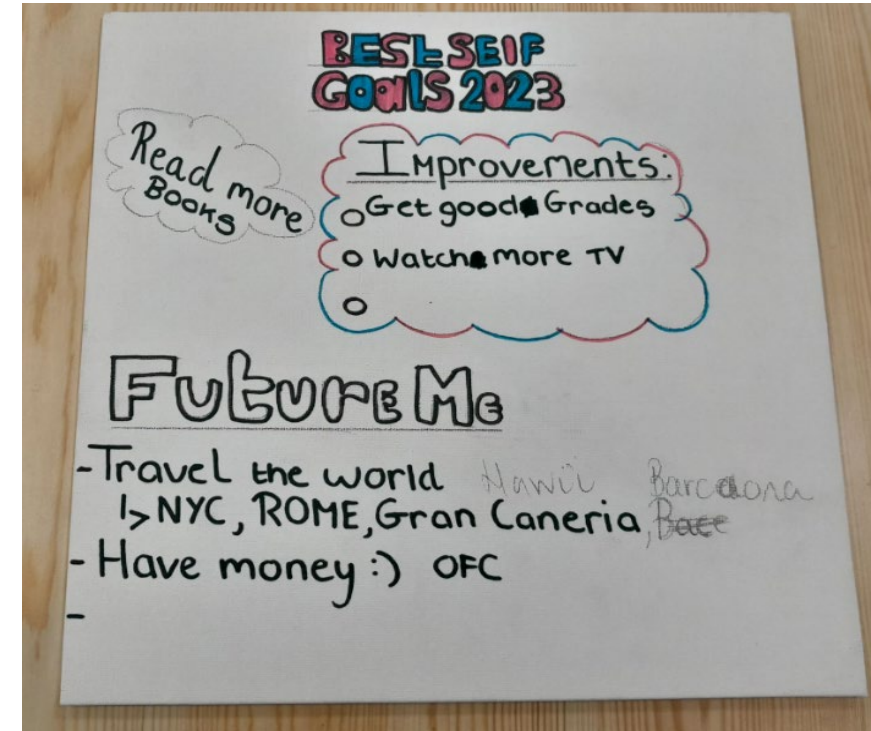 BESt SElF
GOalS 2023
Read more
Books
Improvements:
Get good Grades
Watch more TV
Future Me
-Travel the world Hawii Barcaona
NYC, ROME, Gran Caneria,
- Have money :) OFC
-